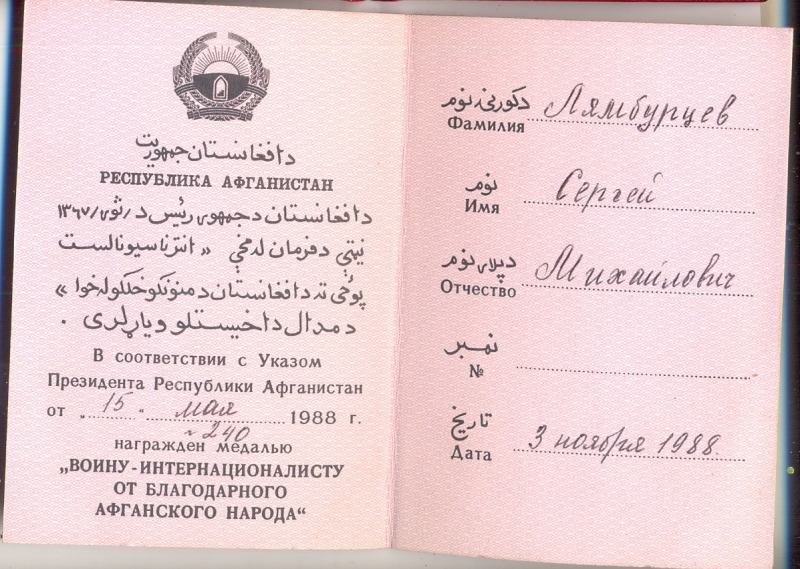 دافغانستان جمهوریت
РЕСПУБЛИКА АФГАНИСТАН
دافغانستان دجمهوری رئیس د / ثوی / ١٣٦٧
نیټې دفرمان له مخې « انترناسیونالست
پوځی ته دافغانستان دمننوکوخلکوله خوا »
دمدال داخیستلو ویاړلری .
В соответствии с Указом
Президента Республики Афганистан
от „ 15 “ мая 1988 г.
№ 240
награжден медалью
„ВОИНУ-ИНТЕРНАЦИОНАЛИСТУ
ОТ БЛАГОДАРНОГО
АФГАНСКОГО НАРОДА“
دکورنۍ نوم
Фамилия Лямбурцев
نوم
Имя Сергей
دپلار نوم
Отчество Михайлович
نمبر
№
تاریخ
Дата 3 ноября 1988.